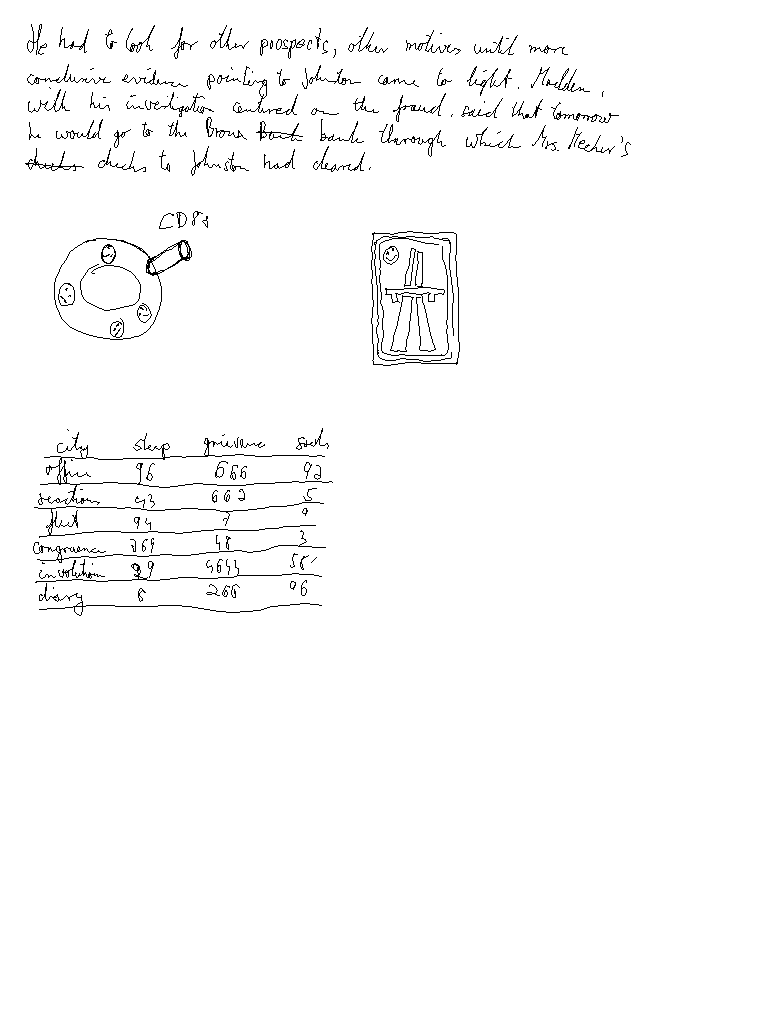 He had to look for other prospects, other motives until more
conclusive evidence pointing to Johnston came to light. Madden,
with his investigation centured on the fraud, said that tomorrow
he would go to the Bronx Bank bank through which Mrs. Meeker's
checks checks to Johnston had cleared.
CD8s
city sleep grievance sacks
office 96 666 92
reactions 43 662 5
fleet 94 7 9
congruence 769 48 3
involution 29 4644 58
diary 8 266 96